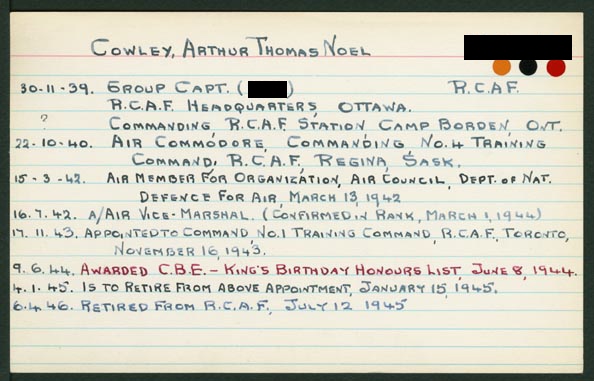 COWLEY, ARTHUR THOMAS NOEL
30-11-39. GROUP CAPT. ( ) R.C.A.F.
R.C.A.F. HEADQUARTERS, OTTAWA.
? COMMANDING, R.C.A.F. STATION CAMP BORDEN, ONT.
22-10-40. AIR COMMODORE, COMMANDING NO. 4 TRAINING
COMMAND, R.C.A.F., REGINA, SASK.
15-3-42. AIR MEMBER FOR ORGANIZATION, AIR COUNCIL, DEPT. OF NAT.
DEFENCE FOR AIR, MARCH 13, 1942
16.7.42. A/AIR VICE-MARSHAL. (CONFIRMED IN RANK, MARCH 1, 1944)
17.11.43. APPOINTED TO COMMAND, NO.1 TRAINING COMMAND, R.C.A.F., TORONTO,
NOVEMBER 16, 1943.
9.6.44. AWARDED C.B.E. - KING'S BIRTHDAY HONOURS LIST, JUNE 8, 1944.
4.1.45. IS TO RETIRE FROM ABOVE APPOINTMENT, JANUARY 15, 1945.
6.4.46. RETIRED FROM R.C.A.F., JULY 12 1945